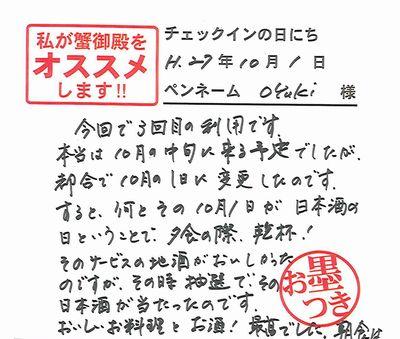 私が蟹御殿を
オススメ
します!!
チェックインの日にち
H.27年10月1日
ペンネーム oyuki 様
今回で3回目の利用です。
本当は10月の中旬に来る予定でしたが、
都合で10月の1日に変更したのです。
すると、何とその10月1日が日本酒の
日ということで、夕食の際、乾杯!
そのサービスの地酒がおいしかった
のですが、その時抽選で、その
日本酒が当たったのです。
おいしいお料理とお酒!最高でした。朝食は
お墨
つき